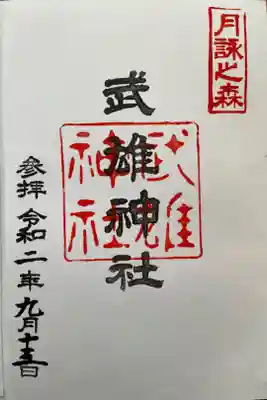 月詠之森
武雄神社
武雄神社
参拝 令和二年九月十三日